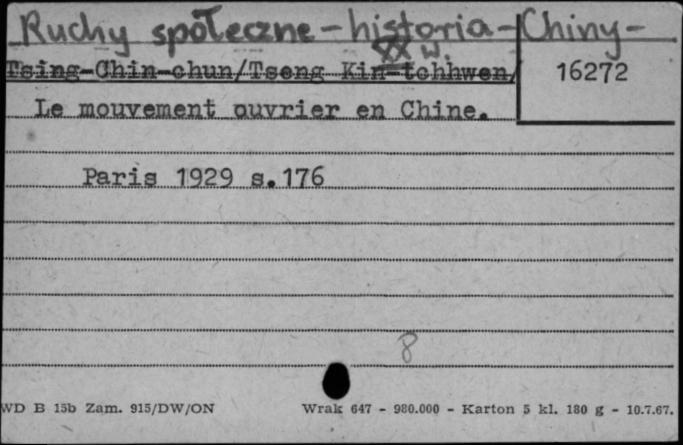 Ruchy społeczne - historia - Chiny -
XX w.
Tsing-Chin-chun/Tseng Kin-tchhwen/
16272
Le mouvement ouvrier en Chine.
Paris 1929 s.176
8
WD B 15b Zam. 915/DW/ON
Wrak 647 - 980.000 - Karton 5 kl. 180 g - 10.7.67.